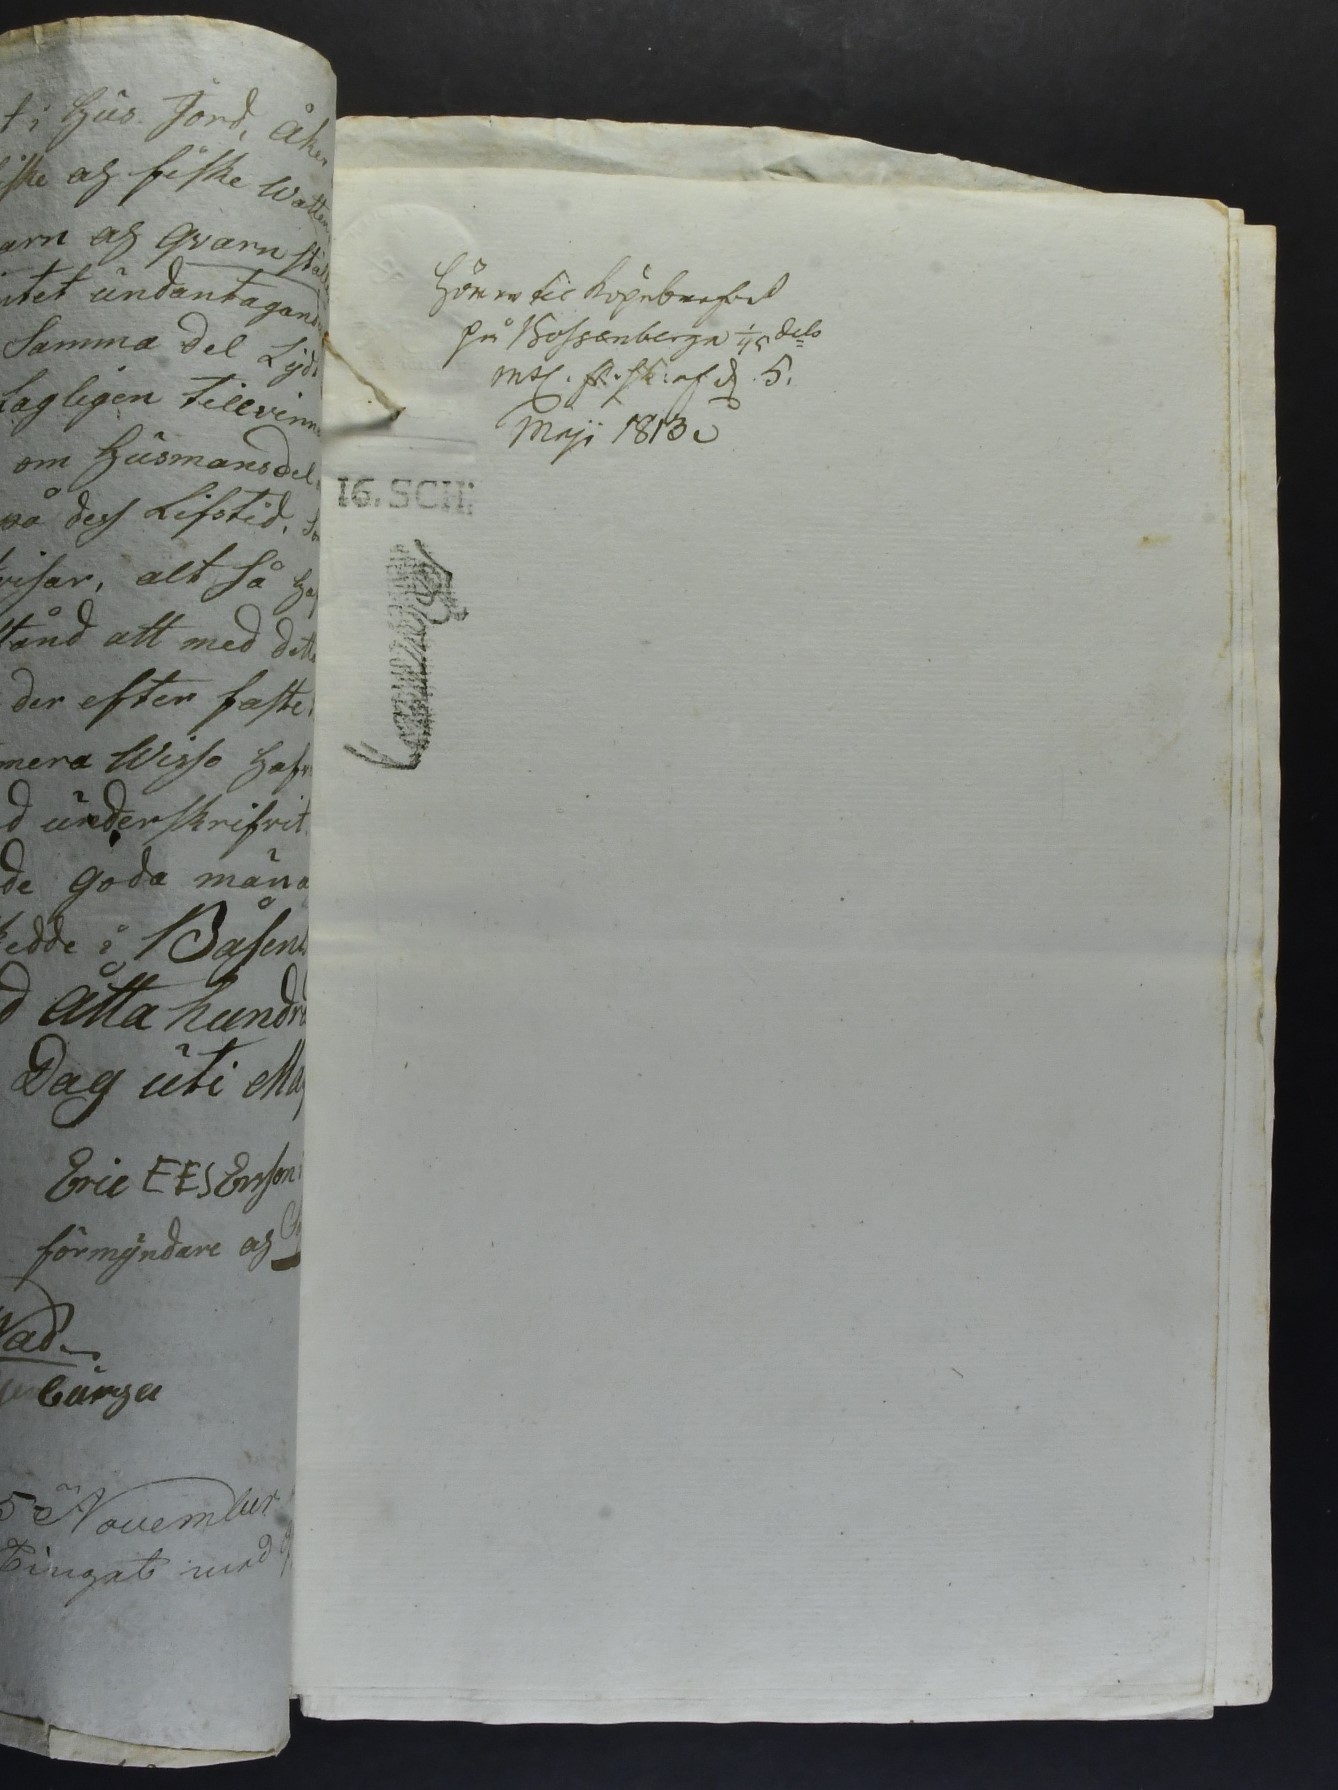 t i Hus. Jord, åker
iske ag fiske watten
arn ag qvarn ställe
intet undantagand
Samma del Lyd
Lagligen tillvinn
om Husmansdel
på dess Lifstid,
visar, alt så ha
stånd att med dett
der efter faste
mera Wisso hafv
d underskrifvit
de goda män a
kedde i Båsenb
d åtta hundra
Dag uti Maj
Eric EES Ersson
förmyndare ag
Wad.
burga
5 November
Tinget med
Hörer til Köpebrefvet
på Bossenberga 1/45 dels
mtl. sk. af d. 5.
Maji 1813
16. SCH: